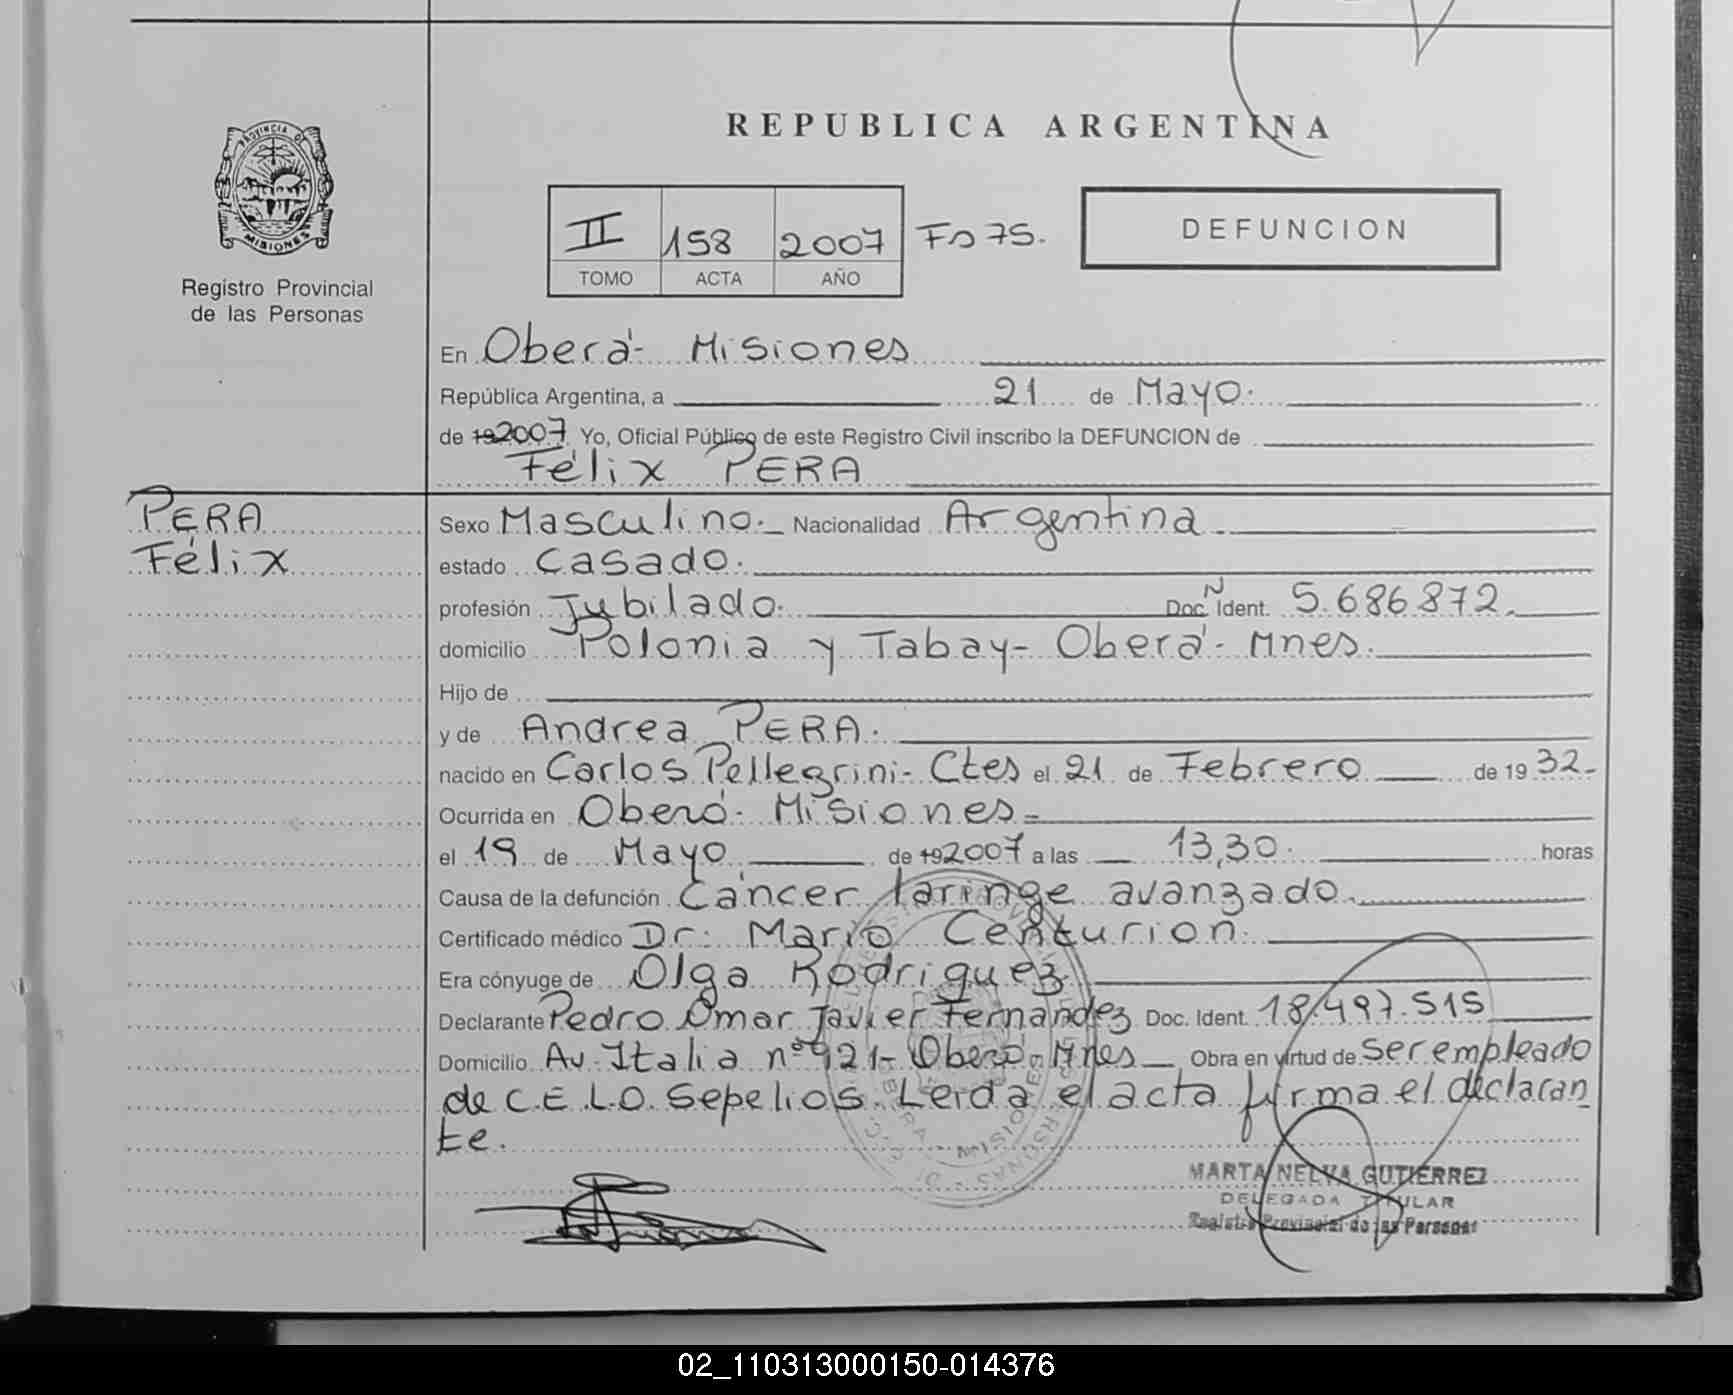 REPUBLICA ARGENTINA
PROVINCIA DE
MISIONES
Registro Provincial
de las Personas
II 158 2007 Fo 75.
TOMO ACTA AÑO
DEFUNCION
En Oberá- Misiones
República Argentina, a 21 de Mayo.
de 192007. Yo, Oficial Público de este Registro Civil inscribo la DEFUNCION de
Félix PERA
PERA
Félix
Sexo Masculino. Nacionalidad Argentina
estado Casado.
profesión Jubilado. Doc. N Ident. 5.686.872.
domicilio Polonia y Tabay- Oberá- Mnes.
Hijo de
y de Andrea PERA.
nacido en Carlos Pellegrini- Ctes el 21 de Febrero de 19 32.
Ocurrida en Oberá- Misiones
el 19 de Mayo de 192007 a las 13,30. horas
Causa de la defunción Cáncer laringe avanzado.
Certificado médico Dr: Mario Centurion.
Era cónyuge de Olga Rodriguez
Declarante Pedro Omar Javier Fernandez Doc. Ident. 18.497.515
Domicilio Av. Italia nº 921- Oberá- Mnes Obra en virtud de ser empleado
de C.E.L.O. Sepelios. Leida el acta firma el declaran
te.
MARTA NELVA GUTIERREZ
DELEGADA TITULAR
Registro Provincial de las Personas
02_110313000150-014376